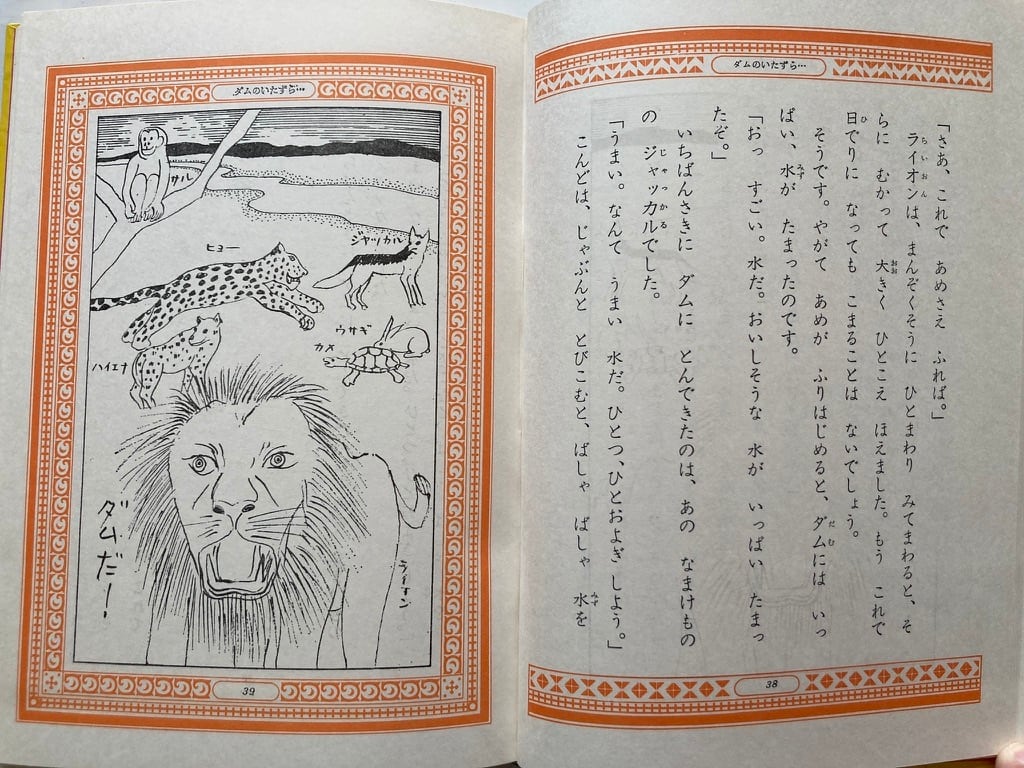 ダムのいたずら…
「さあ、これで　あめさえ　ふれば。」
ライオンは、まんぞくそうに　ひとまわり　みてまわると、そ
らに　むかって　大きく　ひとこえ　ほえました。もう　これで
日でりに　なっても　こまることは　ないでしょう。
そうです。やがて　あめが　ふりはじめると、ダムには　いっ
ぱい、水が　たまったのです。
「おっ　すごい。水だ。おいしそうな　水が　いっぱい　たまっ
たぞ。」
いちばんさきに　ダムに　とんできたのは、あの　なまけもの
の　ジャッカルでした。
「うまい。なんて　うまい　水だ。ひとつ、ひとおよぎ　しよう。」
こんどは、じゃぶんと　とびこむと、ばしゃ　ばしゃ　水を
らいおん
おお
ひ
だむ
みず
じゃっかる
みず
38
ダムのいたずら…
サル
ヒョー
ジャッカル
ウサギ
カメ
ハイエナ
ライオン
ダムだー！
39